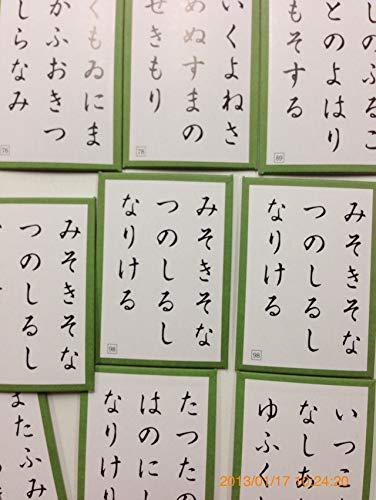 しのふるこ
とのよはり
もそする
89
いくよねさ
めぬすまの
せきもり
78
くもゐにま
かふおきつ
しらなみ
76
みそきそな
つのしるし
なりける
98
みそきそな
つのしるし
なりける
98
みそきそな
つのしるし
いつこ
なしあ
ゆふく
たつたの
はのにし
なりけり
またふみ
2013/01/17 10:24:20